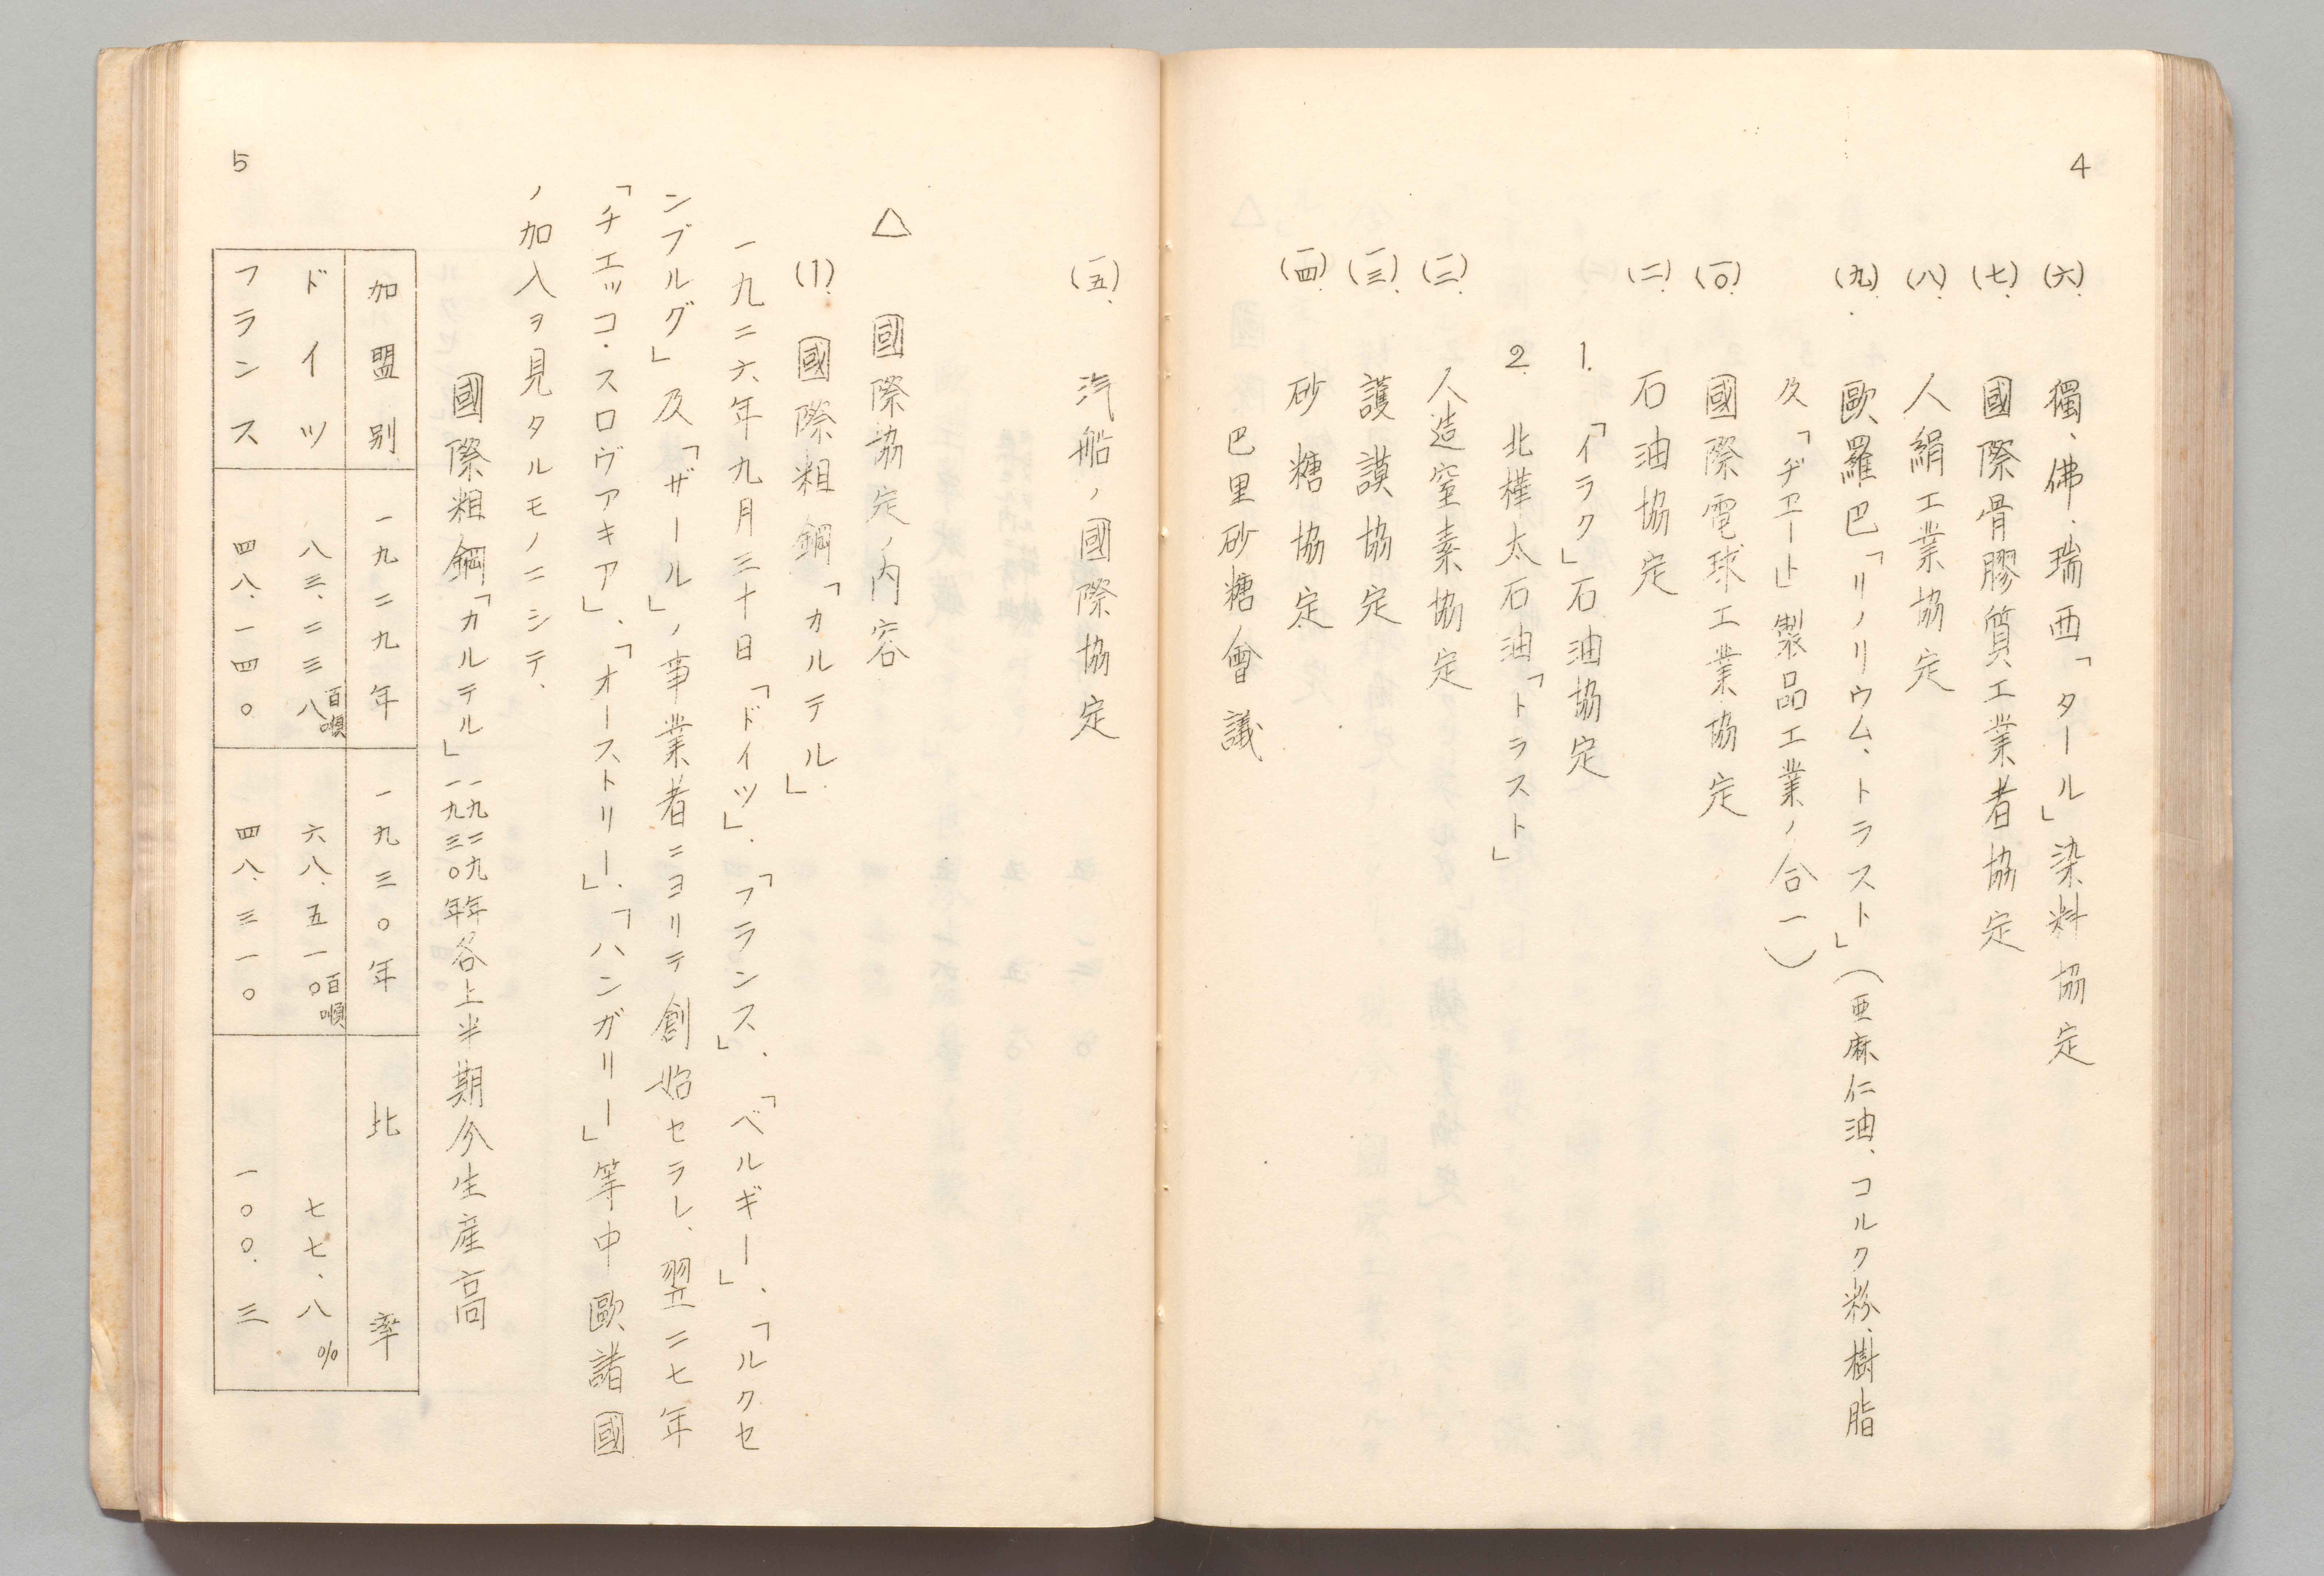 4
(六). 獨、佛、瑞西「タール」染料協定
(七). 國際骨膠質工業者協定
(八). 人絹工業協定
(九). 歐羅巴「リノリウム、トラスト」(亜麻仁油、コルク粉、樹脂
及「ヂユート」製品工業ノ合一)
(一〇). 國際電球工業協定
(一一). 石油協定
1. 「イラク」石油協定
2. 北樺太石油「トラスト」
(一二). 人造窒素協定
(一三). 護謨協定
(一四). 砂糖協定
巴里砂糖會議
(一五). 汽船ノ國際協定
△ 國際協定ノ内容
(1). 國際粗鋼「カルテル」
一九二六年九月三十日「ドイツ」、「フランス」、「ベルギー」、「ルクセ
ンブルグ」及「ザール」ノ事業者ニヨリテ創始セラレ、翌二七年
「チエッコ・スロヴアキア」、「オーストリー」、「ハンガリー」等中歐諸國
ノ加入ヲ見タルモノニシテ、
國際粗鋼「カルテル」一九二九年一九三〇年各上半期分生産高
加盟別 一九二九年 一九三〇年 比率
ドイツ 八三、二三八百噸 六八、五一〇百噸 七七、八%
フランス 四八、一四〇 四八、三一〇 一〇〇、三
5